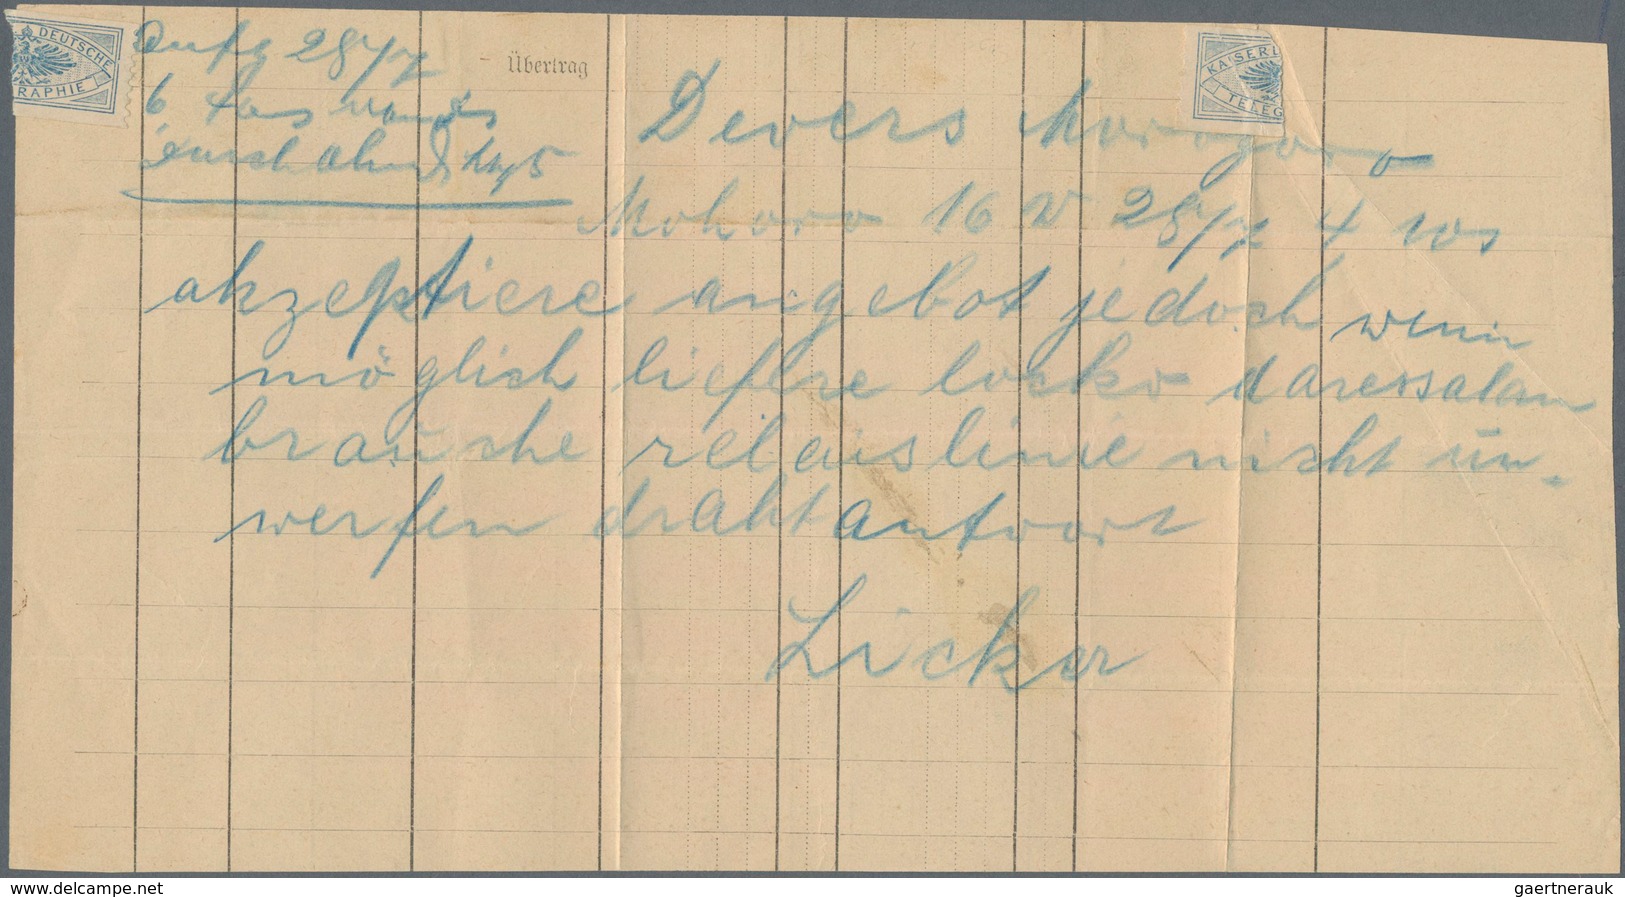 DEUTSCHE
RAPHIE
Aufg 28/7
Übertrag
KAISERL
TELEG
6
durch
Devers Morogoro
Mohoro 16 W 28/7 4 10s
akzeptiere angebot jedoch wenn
möglich liefere locko daressalam
brauche relaislinie nicht
werfen drahtantwort
Licker
www.delcampe.net
gaertnerauk